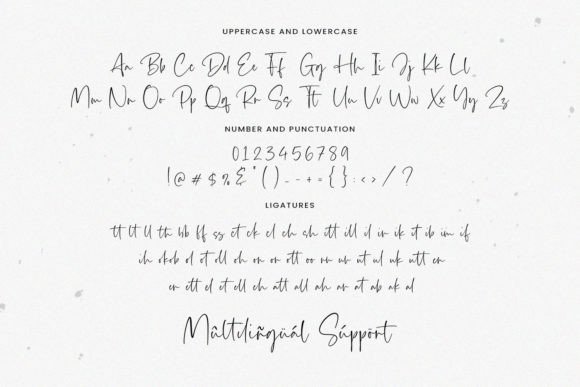 UPPERCASE AND LOWERCASE
Aa Bb Cc Dd Ee Ff Gg Hh Ii Jj Kk Ll
Mm Nn Oo Pp Qq Rr Ss Tt Uu Vv Ww Xx Yy Zz
NUMBER AND PUNCTUATION
0123456789
!@#$%&*()--+={}:<>/?
LIGATURES
tt lt ll th bb ff ss ct ck cl ch sh itt ill il in ik it ib im if
ih okob ol ot oll oh on or ott oo rr un ut ul uk utt en
er ett el et ell eh att all ah an at ab ak al
Mûltdiñgüál Súppört